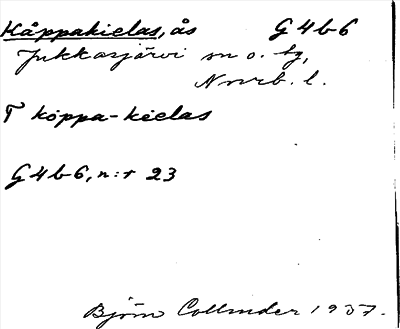 Håppakielas, ås G4b6
Jukkasjärvi sn o. tg,
Norrb. l.
T koppa-kielas
G4b6, n:r 23
Björn Collinder 1937.